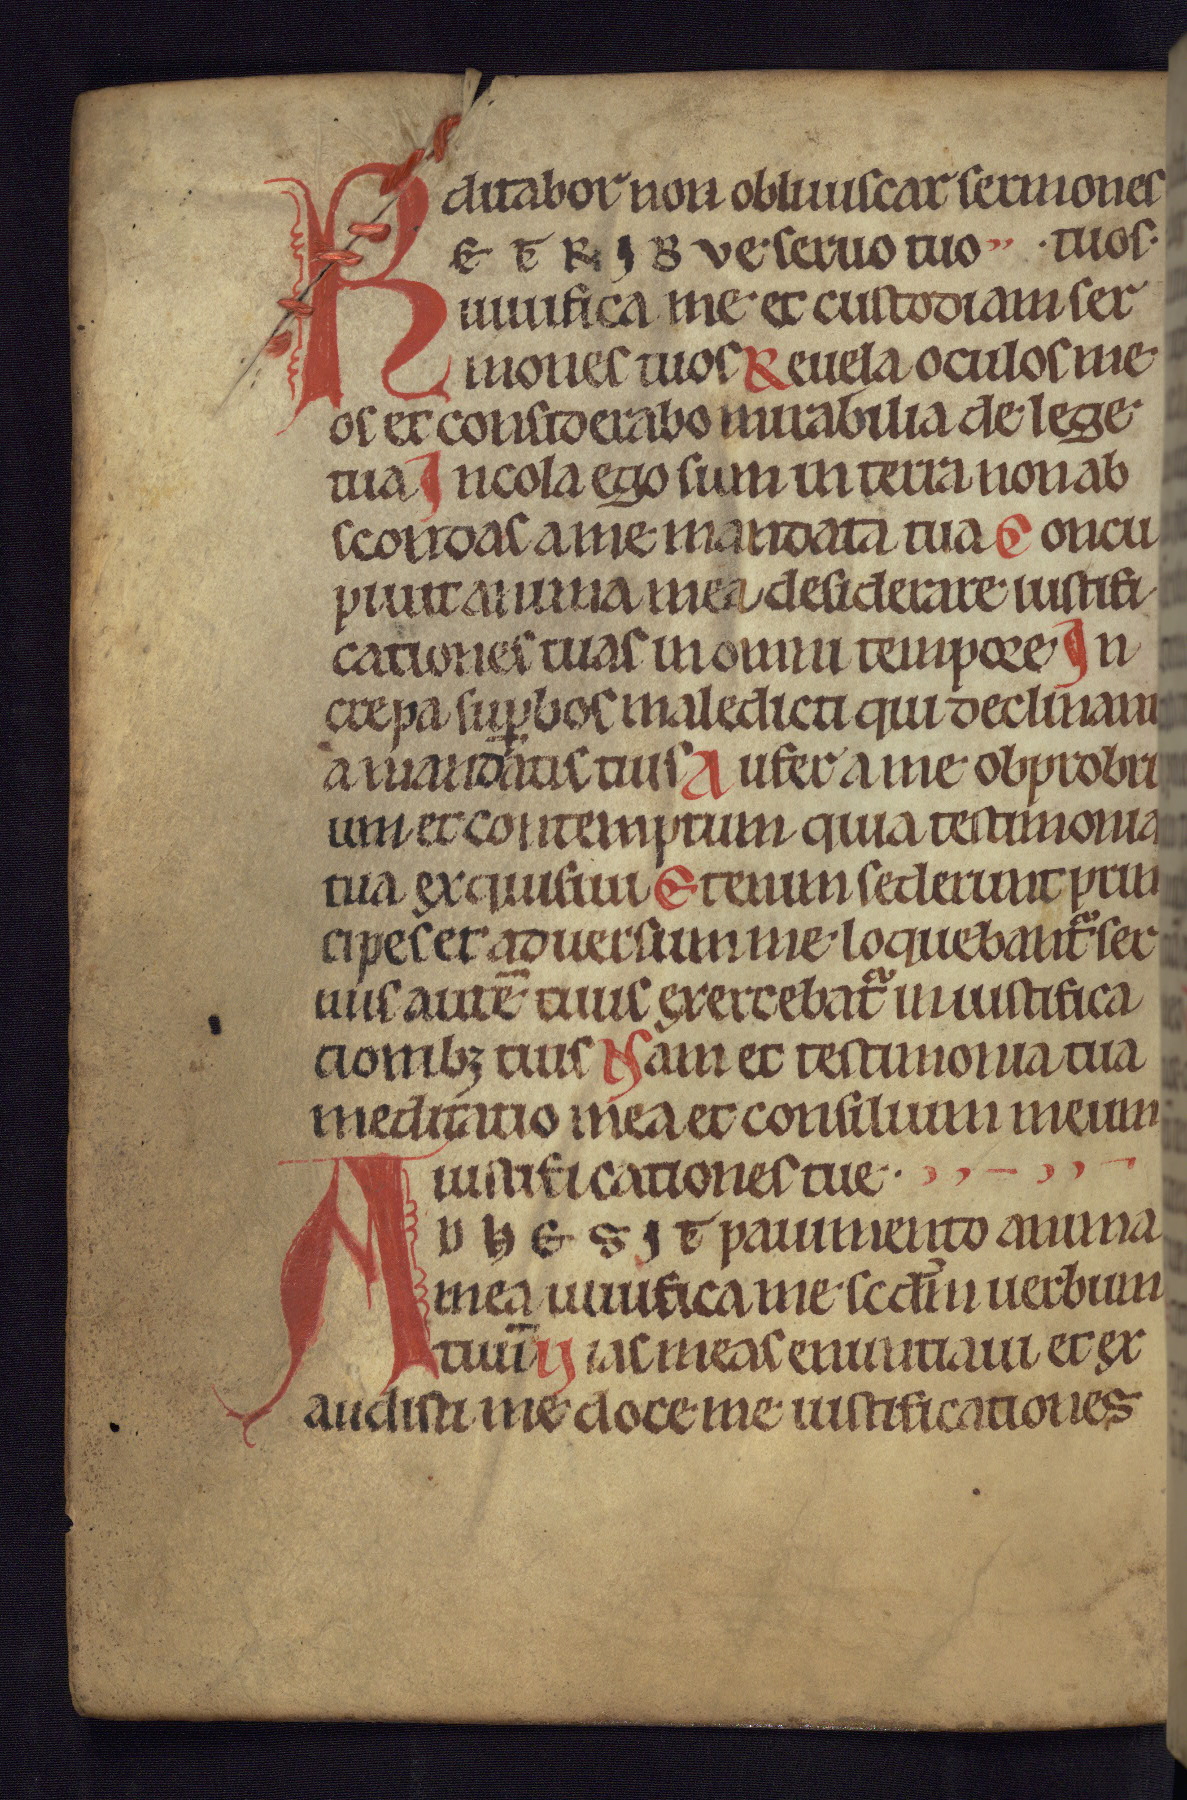 ditabor non obliuiscar sermones
R E T R I B ve seruo tuo ·tuos·
uiuifica me et custodiam ser
mones tuos Reuela oculos me
os et considerabo mirabilia de lege
tua Incola ego sum in terra non ab
scondas a me mandata tua Concu
piuit anima mea desiderare iustifi
cationes tuas in omni tempore In
crepa suꝑbos maledicti qui declinant
a mandatis tuis Aufer a me obprobri
um et contemptum quia testimonia
tua exquisiui Etenim sederunt prin
cipes et aduersum me loquebant᷑ ser
uus autē tuus exercebat᷑ in iustifica
tionibꝫ tuis Nam et testimonia tua
meditatio mea et consilium meum
iustificationes tue·
A D H E S I T pauimento anima
mea uiuifica me scd̄m uerbum
tuū Uias meas enuntiaui et ex
audisti me doce me iustificationes